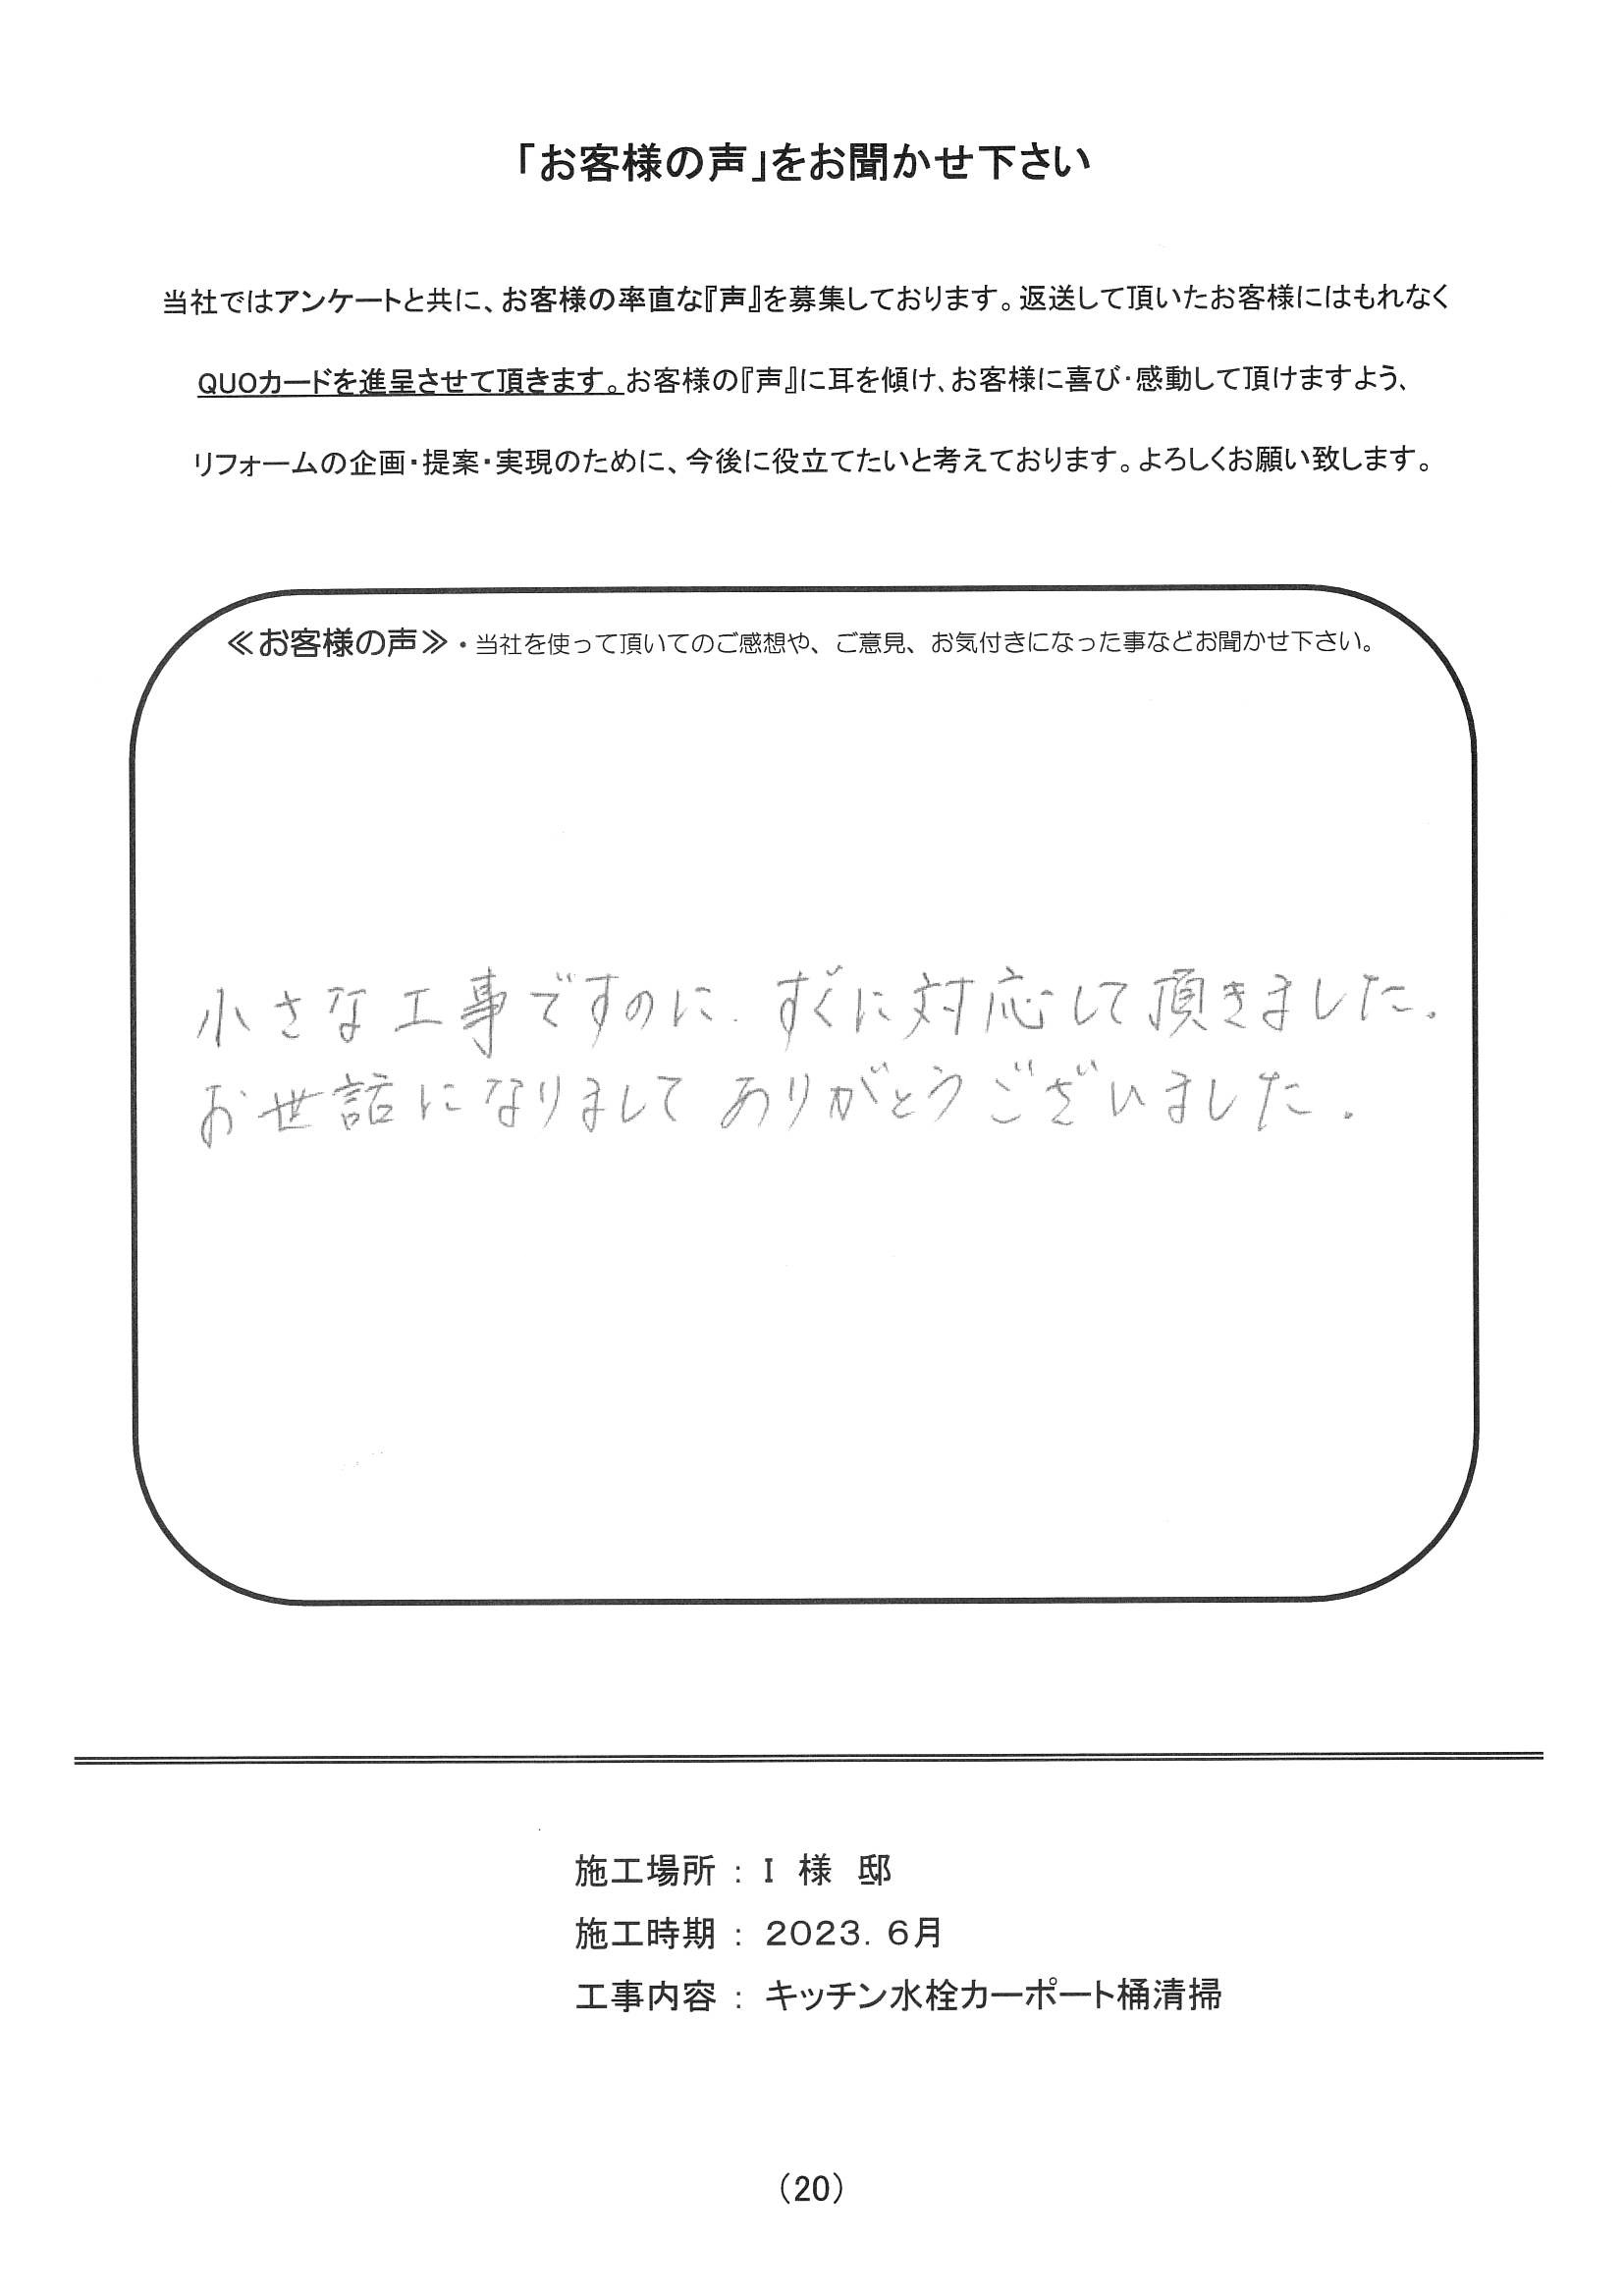 「お客様の声」をお聞かせ下さい
当社ではアンケートと共に、お客様の率直な『声』を募集しております。返送して頂いたお客様にはもれなく
QUOカードを進呈させて頂きます。お客様の『声』に耳を傾け、お客様に喜び・感動して頂けますよう、
リフォームの企画・提案・実現のために、今後に役立てたいと考えております。よろしくお願い致します。
≪お客様の声≫・当社を使って頂いてのご感想や、ご意見、お気付きになった事などお聞かせ下さい。
小さな工事ですのに、すぐに対応して頂きました。
お世話になりまして ありがとうございました。
施工場所 : I 様 邸
施工時期 : 2023. 6月
工事内容 : キッチン水栓カーポート桶清掃
(20)